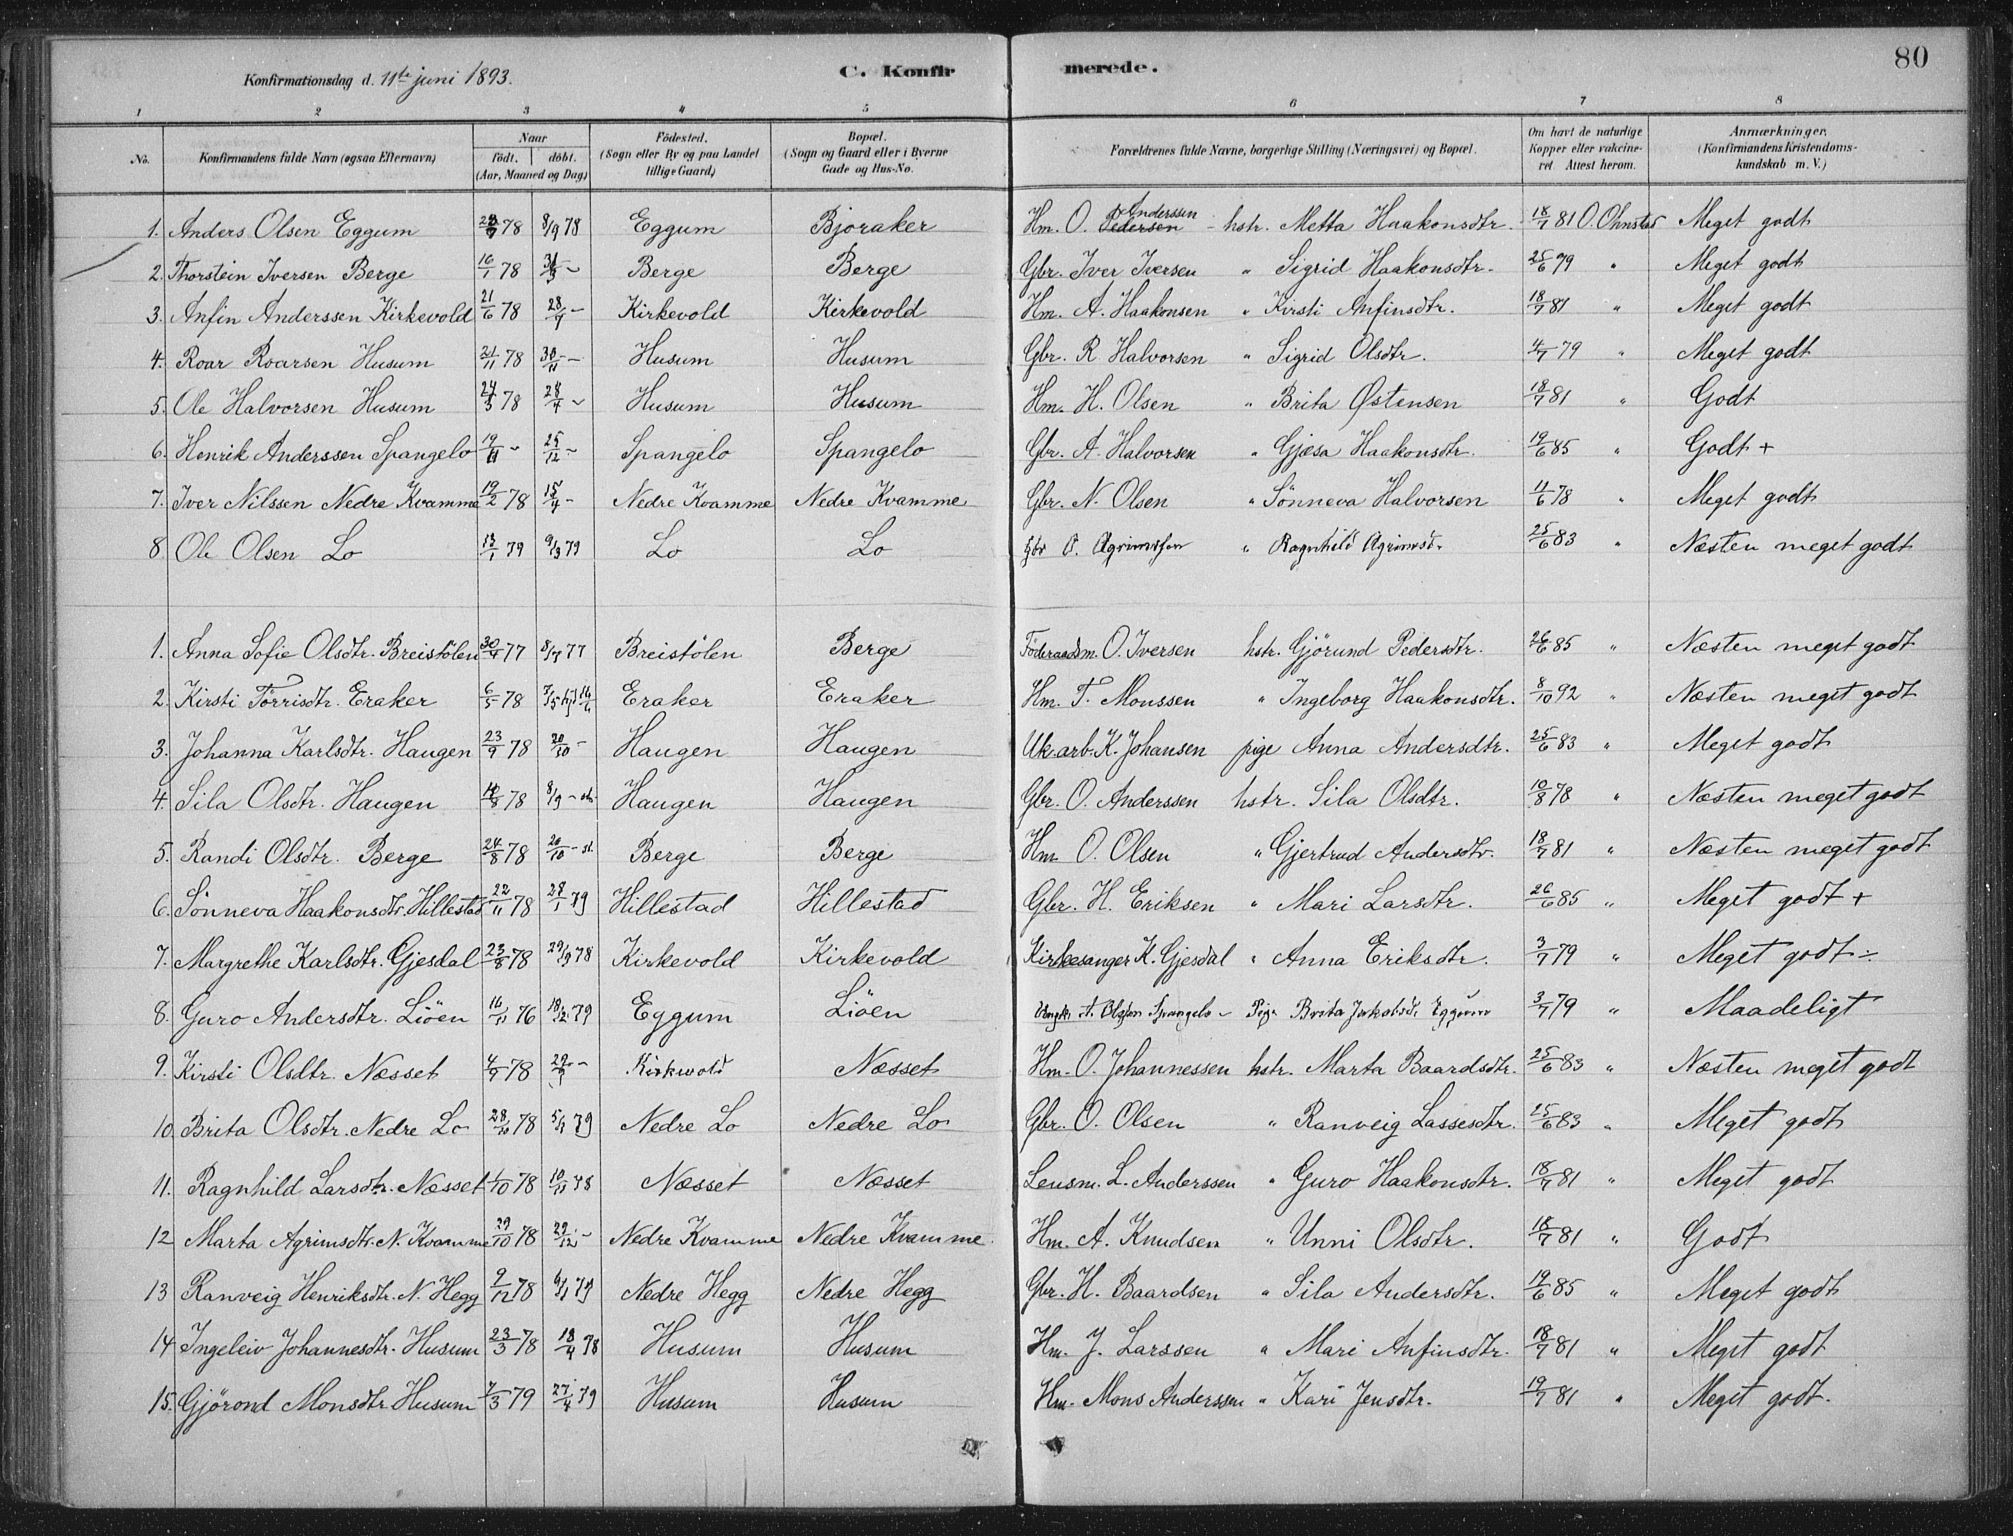 80
Konfirmationsdag d. 11te juni 1893. C. Konfirmerede.
1 2 3 4 5 6 7 8
No. Konfirmandens fulde Navn (ogsaa Efternavn) Naar født. døbt. (Aar, Maaned og Dag) Fødested. (Sogn eller By og paa Landet tillige Gaard) Bopæl. (Sogn og Gaard eller i Byerne Gade og Hus-No. Forældrenes fulde Navne, borgerlige Stilling (Næringsvei) og Bopæl. Om havt de naturlige Kopper eller vakcineret Attest herom. Anmærkninger. (Konfirmandens Kristendomskundskab m. V.)
1. Anders Olsen Eggum 78 8/9 78 Eggum Bjøraker Hm. O. Pedersen Anderssen - hstr. Metta Haakonsdtr. 18/7 81 O. Ohnstad Meget godt
2. Thorstein Iversen Berge 16/1 78 31/3 - Berge Berge Gbr. Iver Iversen " Sigrid Haakonsdtr. 25/6 79 " Meget godt
3. Anfin Anderssen Kirkevold 21/6 78 28/7 - Kirkevold Kirkevold Hm. A. Haakonsen " Kirsti Anfinsdtr. 18/7 81 " Meget godt
4. Roar Roarsen Husum 21/11 78 30/11 - Husum Husum Gbr. R Halvorsen " Sigrid Olsdtr. 4/7 79 " Meget godt
5. Ole Halvorsen Husum 24/3 78 28/4 - Husum Husum Hm. H. Olsen " Brita Østensen 18/7 81 " Godt
6. Henrik Anderssen Spangelo 19/11 - 25/12 - Spangelo Spangelo Gbr. A. Halvorsen " Gjøsa Haakonsdtr. 19/6 85 " Godt +
7. Iver Nilssen Nedre Kvamme 19/2 78 15/4 - Nedre Kvamme Nedre Kvamme Gbr. N. Olsen " Sønneva Halvorsen 11/6 78 " Meget godt
8. Ole Olsen Lo 13/1 79 9/3 79 Lo Lo Gbr O. Agrimssen " Ragnhild Agrimsd. 25/6 83 " Næsten meget godt
1. Anna Sofie Olsdtr. Breistølen 30/4 77 8/7 77 Breistølen Berge Føderaadsm. O. Iversen hstr. Gjørund Pedersdtr. 26/6 85 " Næsten meget godt
2. Kirsti Tørrisdtr. Eraker 6/5 78 7/5 Eraker Eraker Hm. T. Monssen " Ingeborg Haakonsdtr. 8/10 92 " Næsten meget godt
3. Johanna Karlsdtr. Haugen 23/9 78 20/10 - Haugen Haugen Uk. arb. K. Johansen pige Anna Andersdtr. 25/6 83 " Meget godt
4. Sila Olsdtr. Haugen 78 8/9 - Haugen Haugen Gbr. O. Anderssen hstr. Sila Olsdtr. 10/8 78 " Næsten meget godt
5. Randi Olsdtr. Berge 24/8 78 20/10 - Berge Berge Hm O. Olsen " Gjertrud Andersdtr. 18/7 81 " Næsten meget godt
6. Sønneva Haakonsdtr. Hillestad 22/11 78 28/1 79 Hillestad Hillestad Gbr. H. Eriksen " Mari Larsdtr. 26/6 85 " Meget godt +
7. Margrethe Karlsdtr. Gjesdal 23/8 78 29/9 78 Kirkevold Kirkevold Kirkesanger K. Gjesdal " Anna Eriksdtr. 3/7 79 " Meget godt ÷
8. Guro Andersdtr. Liøen 16/11 76 79 Eggum Liøen Ungk. A. Olsson Spangelo - Pige Brita Jakobsd. Eggum 3/7 79 " Maadeligt
9. Kirsti Olsdtr. Næsset 4/9 78 29/9 - Kirkevold Næsset Hm. O. Johannessen hstr. Marta Baardsdtr. 25/6 83 " Næsten meget godt
10. Brita Olsdtr. Nedre Lo 28/10 78 5/1 79 Nedre Lo Nedre Lo Gbr. O. Olsen " Ranveig Lassesdtr. 25/6 83 " Meget godt
11. Ragnhild Larsdtr. Næsset 1/10 78 10/11 78 Næsset Næsset Lensm. L. Anderssen " Guro Haakonsdtr. 18/7 81 " Meget godt
12 Marta Agrimsdtr. N. Kvamme 29/10 78 29/12 - Nedre Kvamme Nedre Kvamme Hm. A. Knudsen " Unni Olsdtr. 18/7 81 " Godt
13 Ranveig Henriksdtr. N. Hegg 9/12 78 6/1 79 Nedre Hegg Nedre Hegg Gbr. H. Baardsen " Sila Andersdtr. 19/6 85 " Meget godt
14 Ingeleiv Johannesdtr. Husum 23/3 78 18/4 78 Husum Husum Hm. J. Larssen " Mari Anfinsdtr. 18/7 81 " Meget godt
15. Gjørond Monsdtr. Husum 7/3 79 27/4 79 Husum Husum Hm. Mons Anderssen " Kari Jensdtr. 19/7 81 " Meget godt.